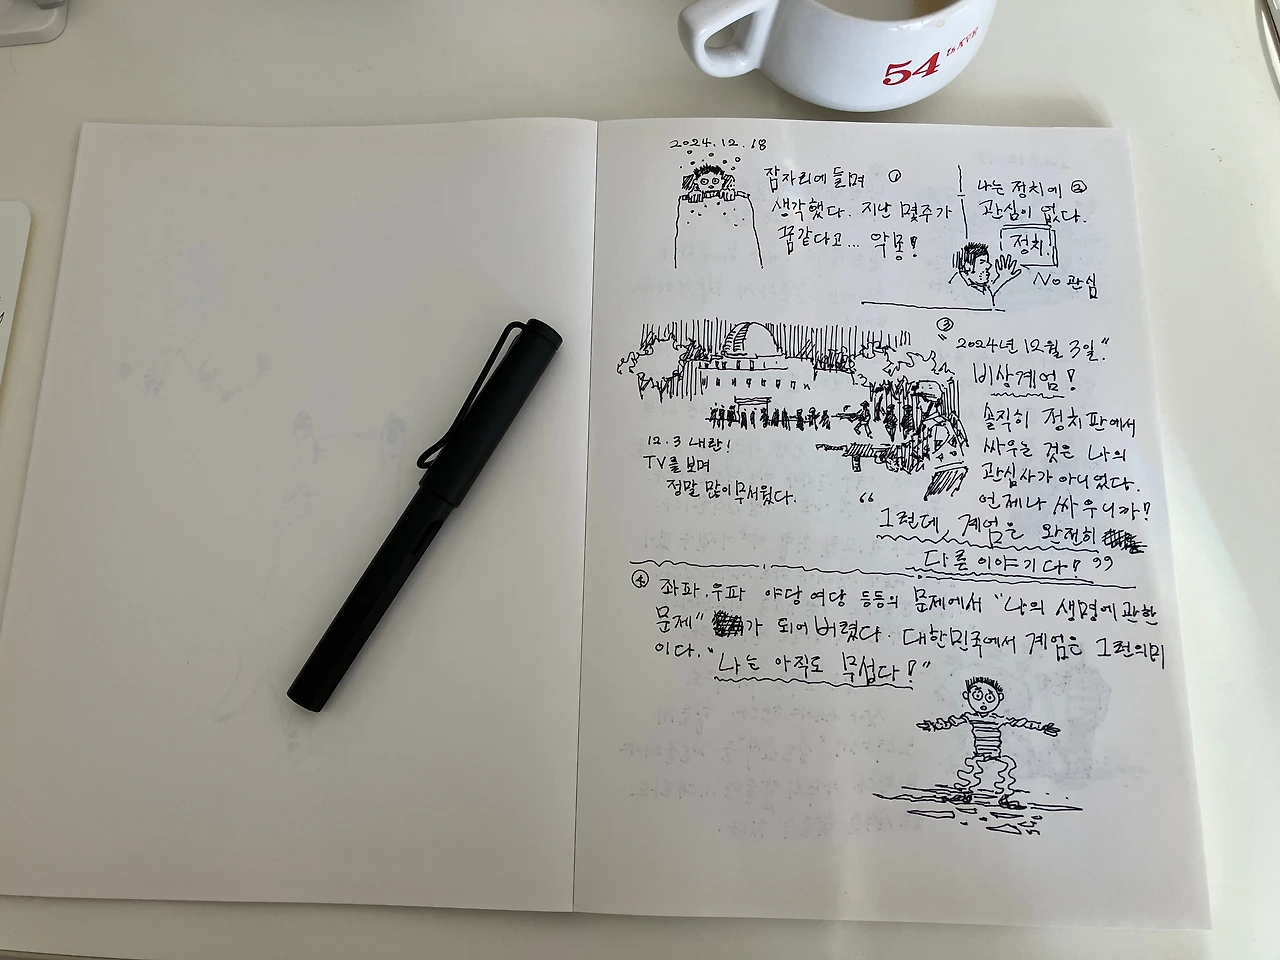 54
2024.12.18
잠자리에 들며 ①
생각했다. 지난 몇주가
꿈같다고... 악몽!
나는 정치에 ②
관심이 없다.
정치!
No 관심
③
"2024년 12월 3일."
비상계엄!
솔직히 정치판에서
싸우는 것은 나의
관심사가 아니었다.
언제나 싸우니까!
"그런데, 계엄은 완전히
다른 이야기다!"
12.3 내란!
TV를 보며
정말 많이 무서웠다.
④ 좌파.우파 야당 여당 등등의 문제에서 "나의 생명에 관한
문제" 가 되어버렸다. 대한민국에서 계엄은 그런의미
이다. "나는 아직도 무섭다!"